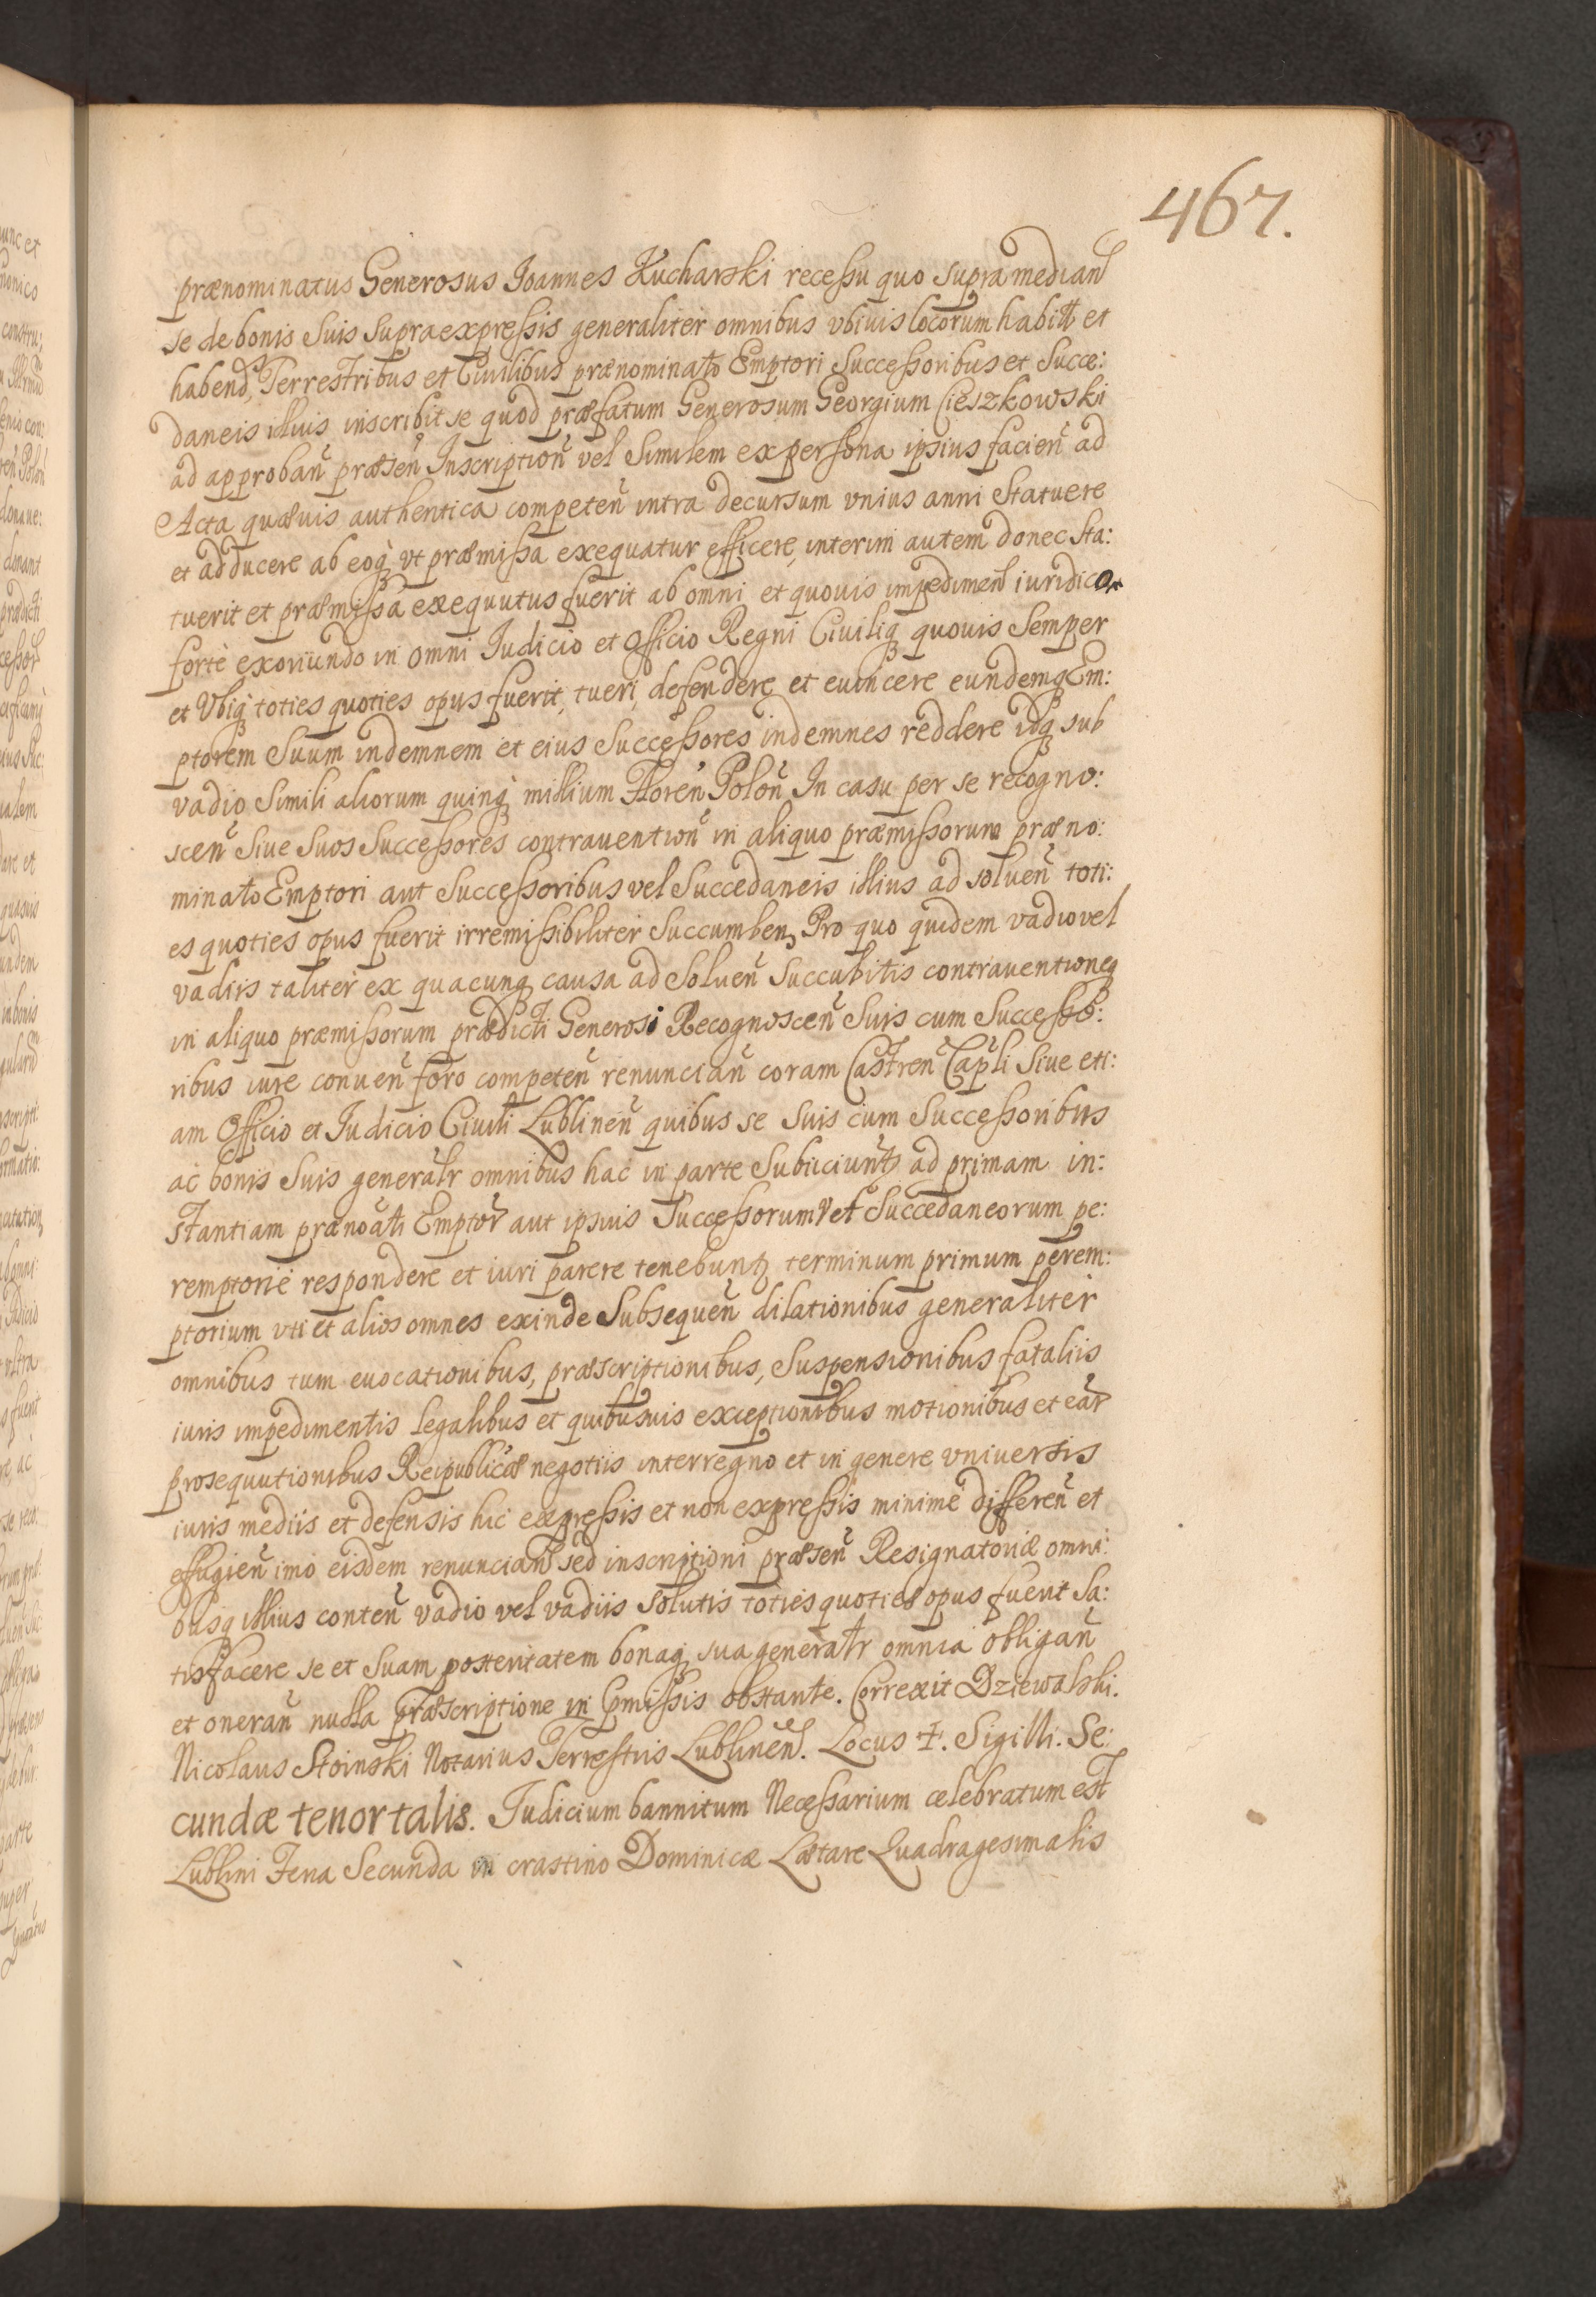 467.
prænominatus Generosus Joannes Kucharski recessu quo supra median̄
se de bonis suis supraexpressis generaliter omnibus vbiuis locorum habit̄ et
habend̄, Terrestribus et Ciuilibus prænominato Emptori Successoribus et Succe:
daneis illius inscribit se quod præfatum Generosum Georgium Cieszkowski
ad approban̄ præsen̄ Inscription̄ vel Similem ex persona ipsius facien̄ ad
Acta quæuis authentica competen̄ intra decursum vnius anni Statuere
et adducere ab eoq̃ vt præmissa exequatur efficere, interim autem donec sta:
tuerit et præmissa exequutus fuerit ab omni et quouis impediment̄ iuridico
fortè exoriundo in omni Judicio et Officio Regni Ciuiliq̃ quouis Semper
et Vbiq̃ toties quoties opus fuerit, tueri, defendere et euincere eundemq̃ Em:
ptorem Suum indemnem et eius Successores indemnes reddere idq̃ sub
vadio Simili aliorum quinq̃ millium Floren̄ Polon̄ In casu per se recogno:
scen̄ Siue Suos Successores contrauention̄ in aliquo præmissorum præno:
minato Emptori aut Successoribus vel Succedaneis illius ad soluen̄ toti:
es quoties opus fuerit irremissibiliter Succumben, Pro quo quidem vadio vel
vadiis taliter ex quacunq̃ causa ad Soluen̄ Succubitis contrauentioneq̃
in aliquo præmissorum prædicti Generosi Recognoscen̄ Suis cum Successo:
ribus iure conuen̄ foro competen̄ renuncian̄ coram Castren̄ Capt̄li Siue eti:
am Officio et Judicio Ciuili Lublinen̄ quibus se Suis cum Successoribus
ac bonis Suis general̄r omnibus hac in parte Subiiciunt̃ ad primam in:
stantiam prænoāti Emptor̄ aut ipsius Successorum vel Succedaneorum pe:
remptoriè respondere et iuri parere tenebunt̃ terminum primum perem:
ptorium vti et alios omnes exinde Subsequen̄ dilationibus generaliter
omnibus tum euocationibus, præscriptionibus, Suspensionibus fataliis
iuris impedimentis legalibus et quibusuis exceptionibus motionibus et eār
prosequutionibus Reipublicæ negotiis interregno et in genere vniuersis
iuris mediis et defensis hic expressis et non expressis minimè differen̄ et
effugien̄ imò eisdem renuncian̄ sed inscriptioni præsen̄ Resignatoriæ omni:
busq̃ illius conten̄ vadio vel vadiis solutis toties quoties opus fuerit Sa:
tisfacere se et Suam posteritatem bonaq̃ sua general̄r omnia obligan̄
et oneran̄ nulla præscriptione in p̄missis obstante. Correxit Dziewalski.
Nicolaus Stoinski Notarius Terrestris Lublinen̄. Locus ‡. Sigilli. Se:
cundæ tenor talis. Judicium bannitum Necessarium celebratum est
Lublini Feria Secunda in crastino Dominicæ Lætare Quadragesimalis